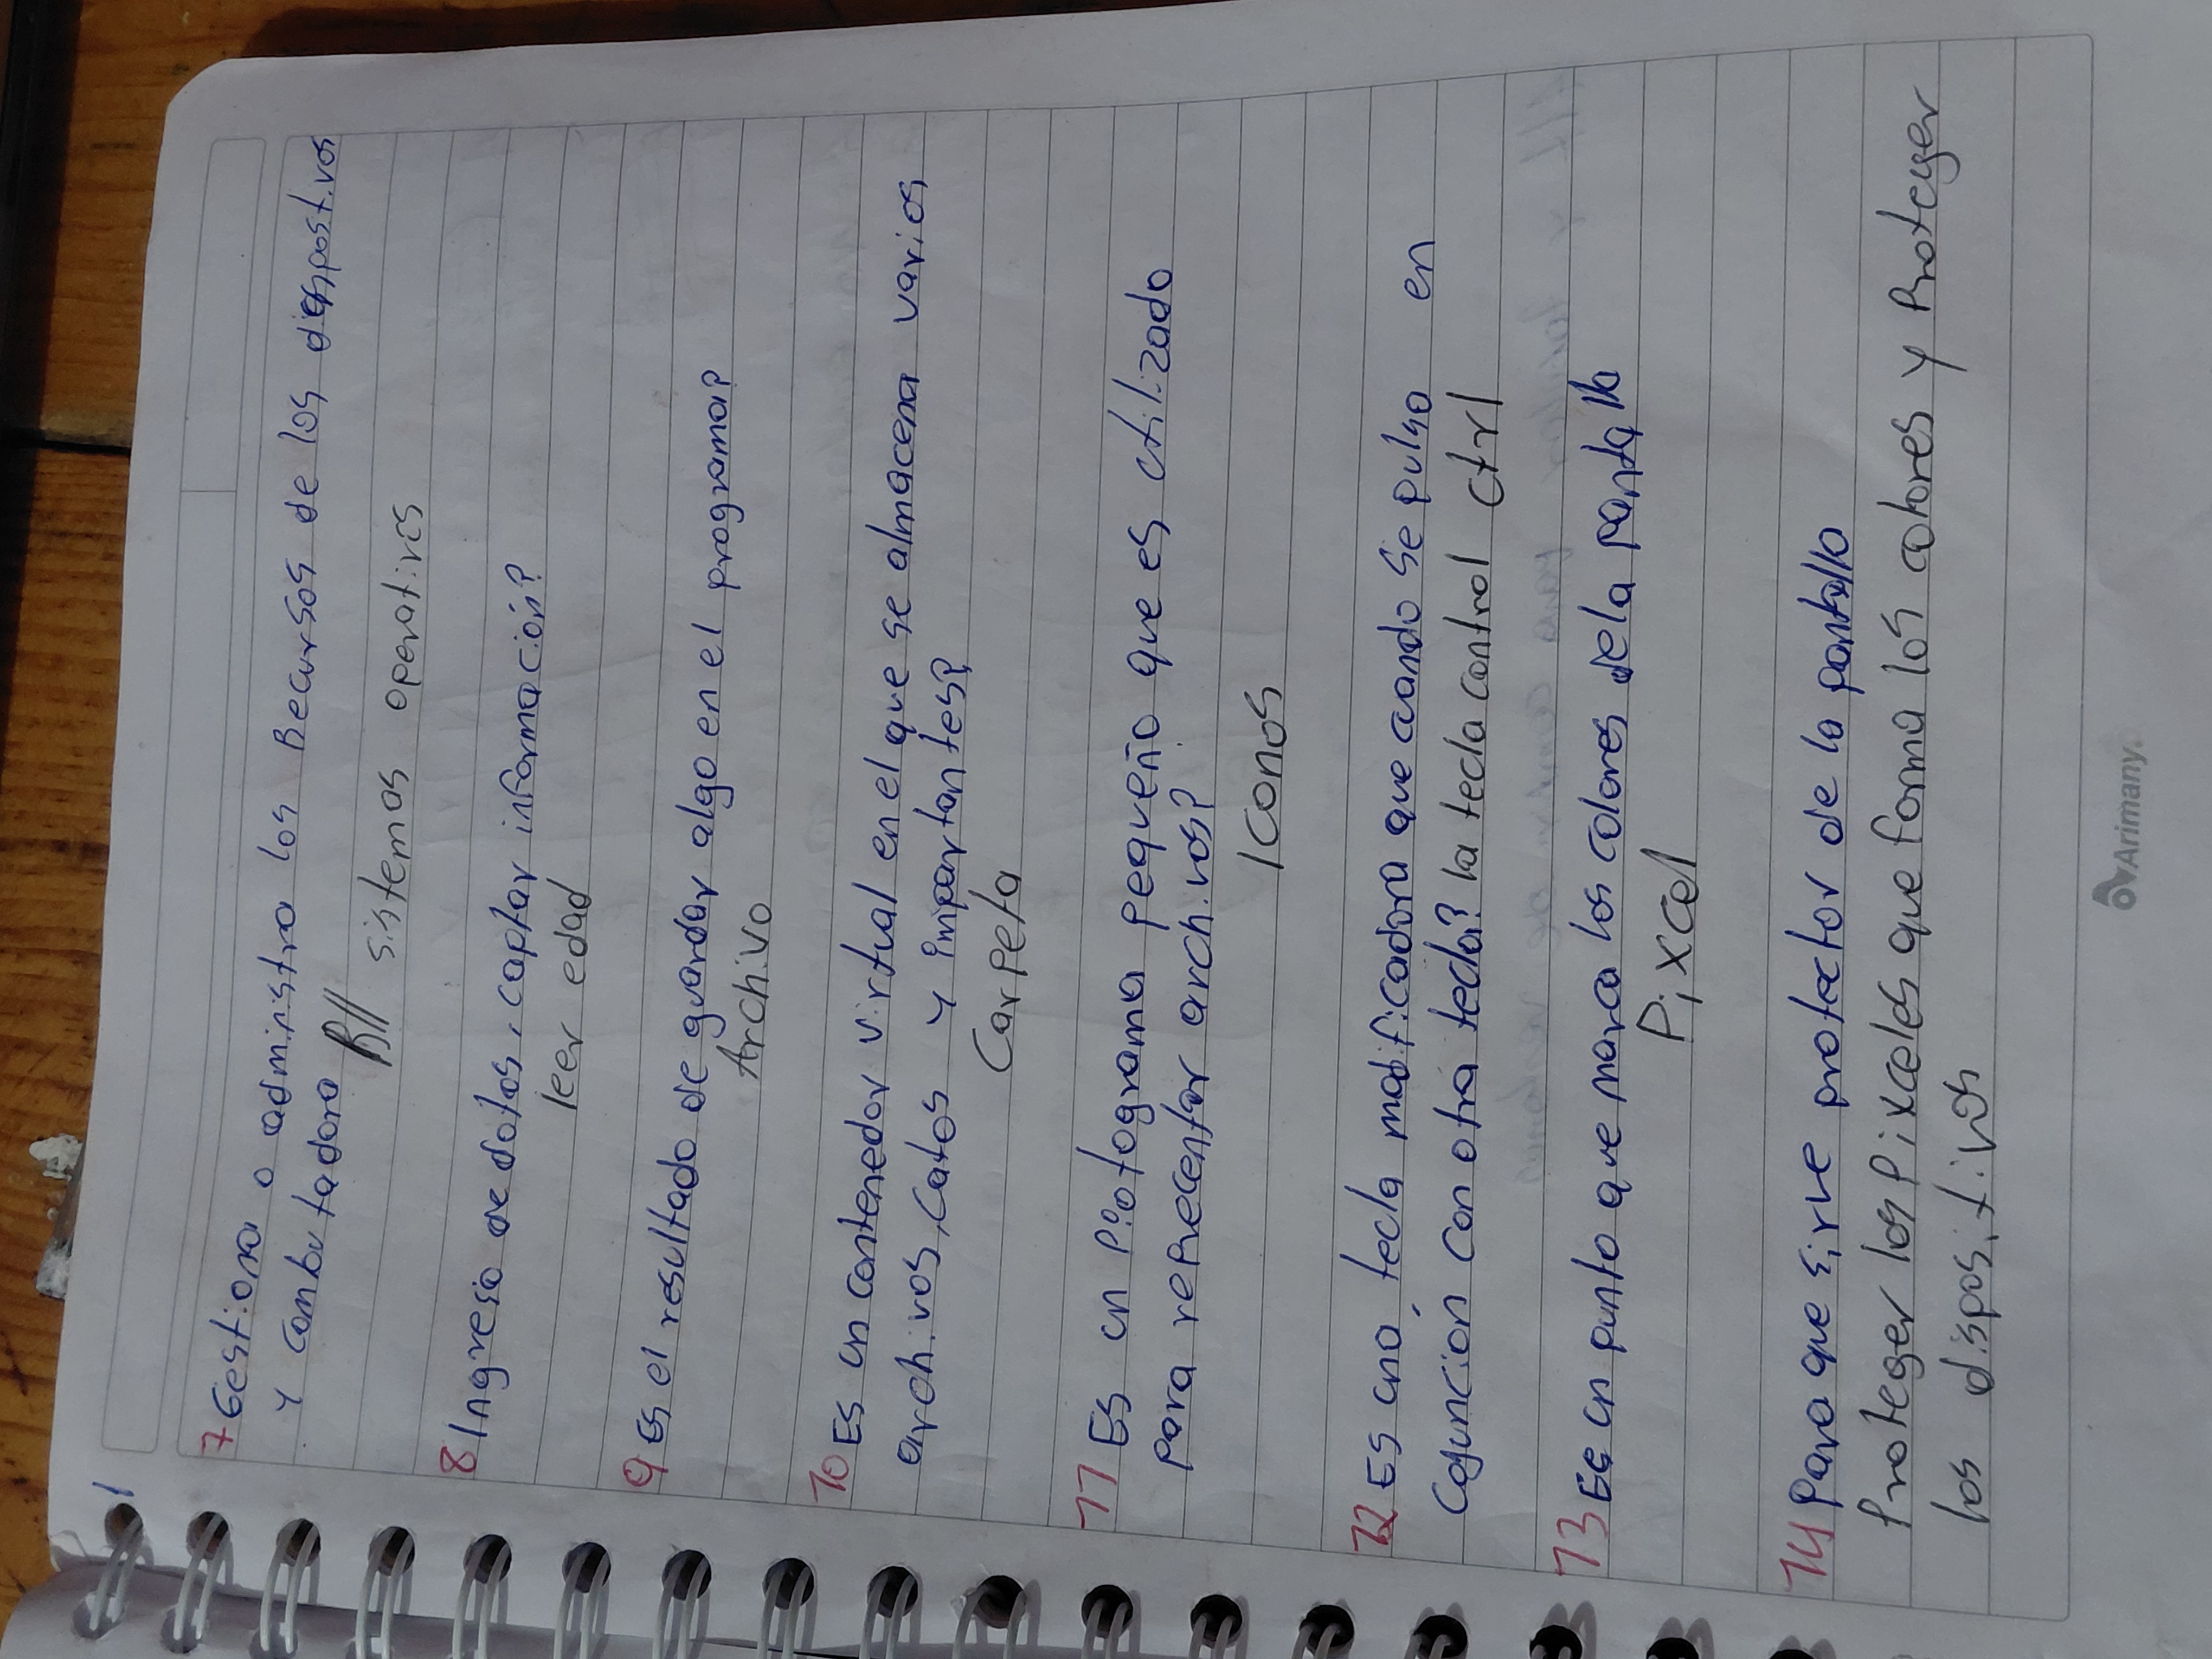 7 Gestiona o administra los Recursos de los dispost.vos
y combutadora
R// sistemas operatires
8 Ingreso de datos, captar información?
leer edad
9 Es el resultado de guardar algo en el programa?
Archivo
10 Es cn contenedor virtual en el que se almacena varios
archivos, Catos y importantes?
Carpeta
11 Es cn Pictograma pequeño que es ctilizado
para reprecentar archivos?
Iconos
12 Es cna tecla modificadora que cuando se pulsa en
Cojunción con otra tecla? la tecla control ctrl
13 Es cn punto que marca los colores dela pantalla
Pixcel
14 Para que sirve protector de la pantalla
Proteger los Pixceles que forma los colores y Proteger
los dispositivos
Arimany.